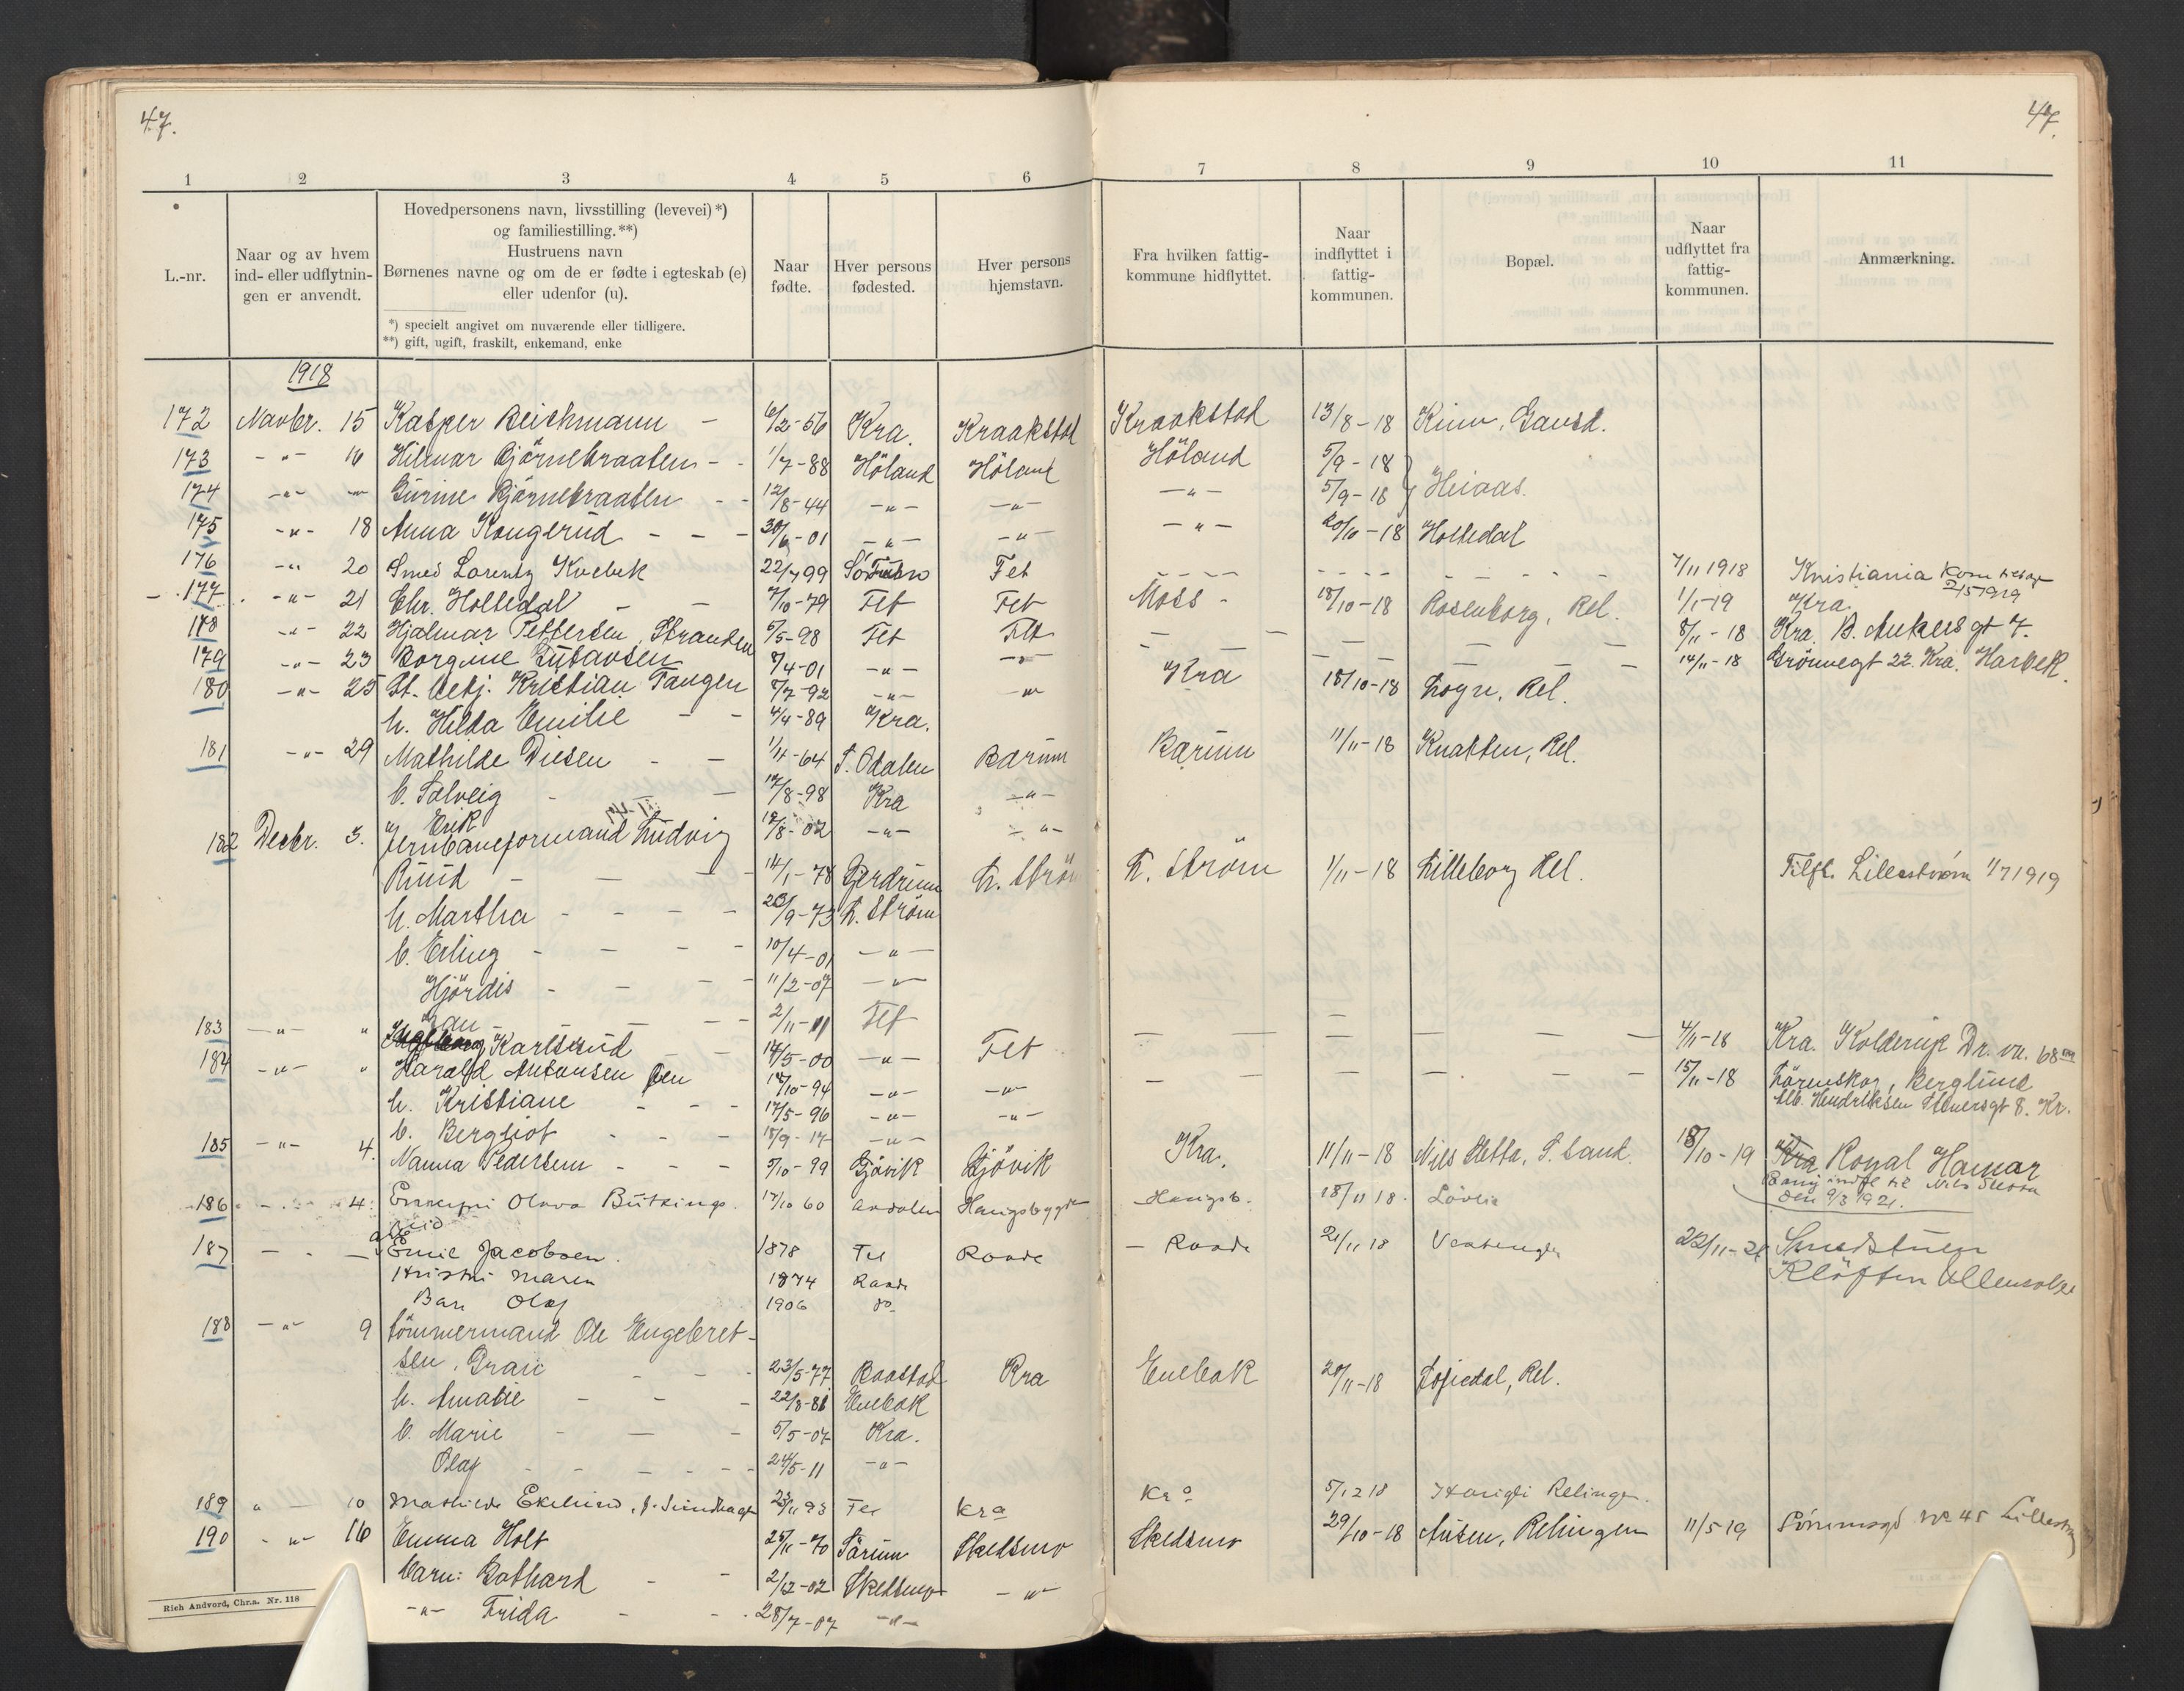 47.
47.
1 2 3 4 5 6 7 8 9 10 11
L.-nr.
Naar og av hvem ind- eller udflytnin-gen er anvendt.
Hovedpersonens navn, livsstilling (levevei)*)
og familiestilling.**)
Hustruens navn
Børnenes navne og om de er fødte i egteskab (e)
eller udenfor (u).
*) specielt angivet om nuværende eller tidligere.
**) gift, ugift, fraskilt, enkemand, enke
Naar fødte.
Hver persons fødested.
Hver persons hjemstavn.
Fra hvilken fattig-kommune hidflyttet.
Naar indflyttet i fattig-kommunen.
Bopæl.
Naar udflyttet fra fattig-kommunen.
Anmærkning.
1918
172 Novbr. 15 Kasper Beichmann - 6/2-56 Kra. Kraakstad Kraakstad 13/8-18 Rinn, Gaust.
173 -"- 16 Hilmar Bjørnebraaten - - 1/7-88 Høland Høland Høland 5/9-18
174 -"- " Gurine Bjørnebraaten - - 12/8-44 -"- -"- -"- 5/9-18 Heiaas.
175 -"- 18 Anna Kongerud - - - 30/6-01 -"- -"- -"- 20/10-18 Holtedal
176 -"- 20 Smed Lorentz Kvebek 22/7 99 Fet 7/11 1918 Kristiania Kom tilbage 2/5 1919
177 -"- 21 Chr. Holtedal - - 7/10-79 Fet Fet Moss - 18/10-18 Rosenborg, Rel. 1/1-19 Kra.
178 -"- 22 Hjalmar Pettersen, Stranden 5/5-98 Fet Fet - - - - - 8/11-18 Kra. B. Ankersgt 7.
179 -"- 23 Borgine Gustavsen 8/4-01 -"- -"- - - - 14/11-18 Grönnegt 22. Kra. Harbek.
180 -"- 25 St. betj. Kristian Tangen 8/7-92 -"- -"- Kra 18/10-18 Logn, Rel.
h. Hilda Emilie - - 4/4-89 Kra.
181 -"- 29 Mathilde Diesen - - 1/11-64 S. Odalen Bærum Bærum 11/11-18 Knatten, Rel.
b. Solveig - - 17/8-98 Kra -"-
Erik 12/8-02 -"- -"-
182 Decbr. 3. Jernbaneformand Ludvig
Ruud - - - 14/1-78 Gjerdrum L. Strøm L. Strøm 1/11-18 Lilleborg Rel. Tilfl. Lillestrøm 1/7 1919
h. Martha - - - - 20/9-73 L. Strøm
b. Erling - - - - 10/4-01 -"-
Hjördis - - - - 11/2-07 -"-
- - - 2/11-11 Fet
183 -"- " Ingeborg Karlsrud - - 14/5-00 -"- Fet - - - - - 4/11-18 Kra. Kolderup Dr. vn. 68
184 -"- " Harald Antonsen 18/10-94 -"- -"- - - - - - 15/11-18 Lörenskog, Berglund
h. Kristiane - - - 17/5-96 -"- -"- Alb. Hendriksen Storgt 8. Kr.
b. Bergliot - - - 18/9-17 -"-
185 -"- 4. Nanna Pedersen - - - 5/10-99 Gjövik Gjövik Kra. 11/11-18 Nils Sletta, S. Sand. 18/10-19 Kra Royal Hamar
186 -"- 4. Olava Butsings 17/10 60 Aadalen Haugsbygd Haugsb. 18/11 18. Løvlia den 9/3 1921.
187 - - - Emil Jacobsen. 1878 Fet Raade - Raade 21/11 18 22/11-21 Smedstuen
Hustru Maren 1874 Raade Kløften Ullensaker
Barn Olaf 1906 do-
188 -"- 9 Tömmermand Ole Engebret-
sen, - - - 23/5-77 Baastad Kra Enebak 20/11-18 Rel.
h. Amalie - - - 22/8-81 Enebak
b. Marie - - - 5/5-07 Kra.
Olaf - - - - - 24/5-11 -"-
189 " - 10 Mathilde Ekelund, f. Sundhagen 23/11 93 Fet Kra Kra 5/12 18 Relingen.
190 - "- 16 Emma Holt 25/11-70 Sörum Skedsmo Skedsmo 29/10-18 Ausen, Relingen 11/5-19 No 45 Lillestrøm
barn: Bothard - - 2/12-02 Skedsmo - "-
-"- Frida - - - 28/7-07 -"-
Rich Andvord, Chr.a. Nr. 118